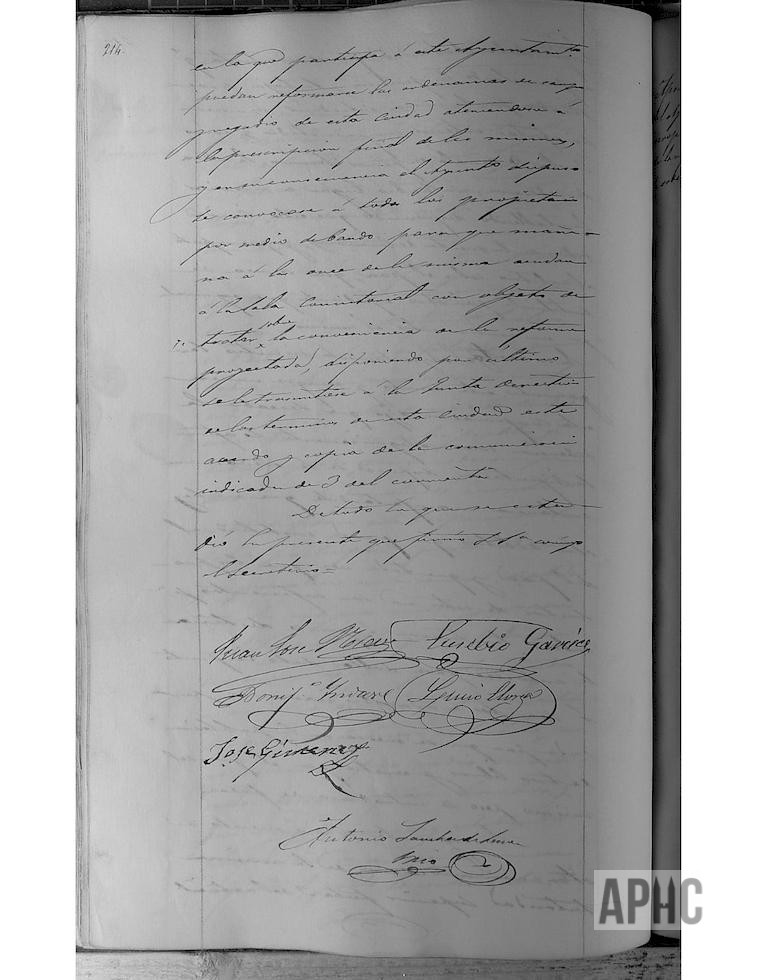 214.
en la que participa á este Ayuntamto
puedan reformarse las ordenanzas de
de esta Ciudad ateniendose á
la prescripcion final de las mismas,
y en su consecuencia el Aynto dispuso
se convocase á todos los propietarios
por medio de bando para que maña-
na á las once de la misma acudan
á la Sala Consistorial con objeto de
tratar sobre la conveniencia de la reforma
proyectada, disponiendo por último
se le trasmitiese á la Junta directiva
de los terminos de esta ciudad este
acuerdo y copia de la comunicacion
indicada de 3 del corriente
De todo lo que se esten
dió la presente que firmó S Sª conmigo
el Secretario=
Juan José
Eusebio Garcés
Bonifº
Lucio
José Gimenez
Antonio Sanchez de
Srio
APHC